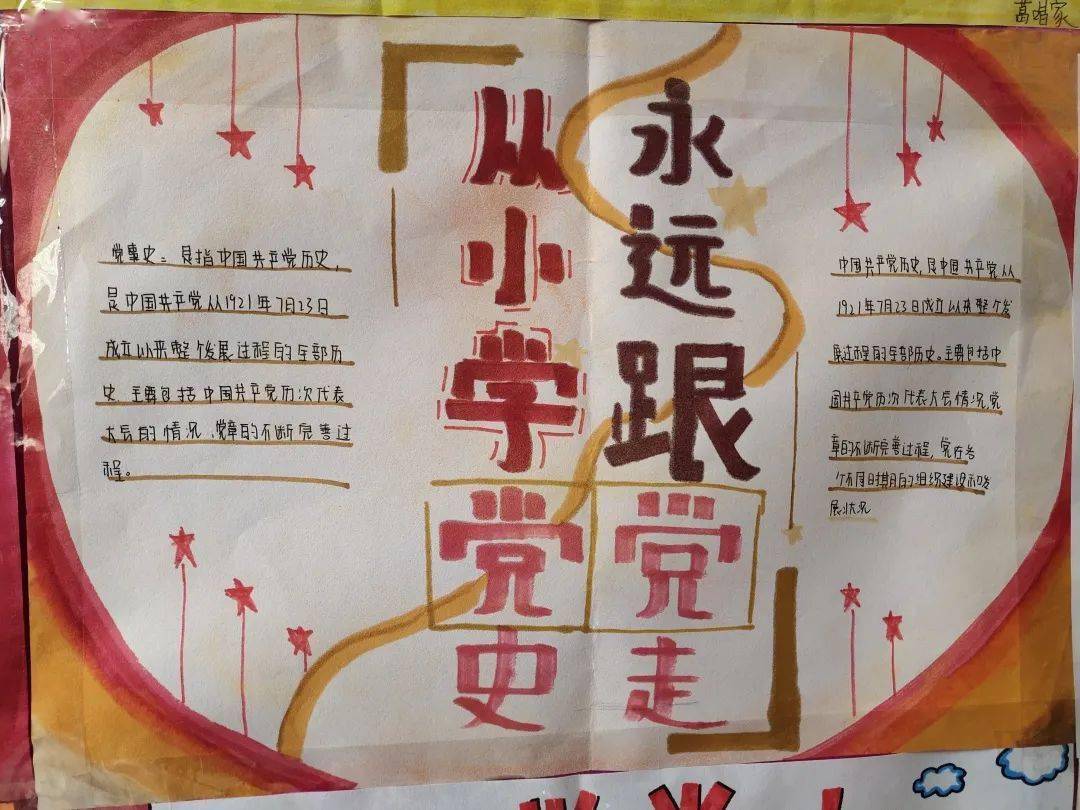 葛唱家
从小学党史
永远跟党走
党事史：是指中国共产党历史，
是中国共产党从1921年7月23日
成立以来整个发展过程的全部历
史，主要包括中国共产党历次代表
大会的情况、党章的不断完善过
程。
中国共产党历史，是中国共产党从
1921年7月23日成立以来整个发
展过程的全部历史。主要包括中
国共产党历次代表大会情况，党
章的不断完善过程，党在各
个不同时期的组织建设和发
展状况